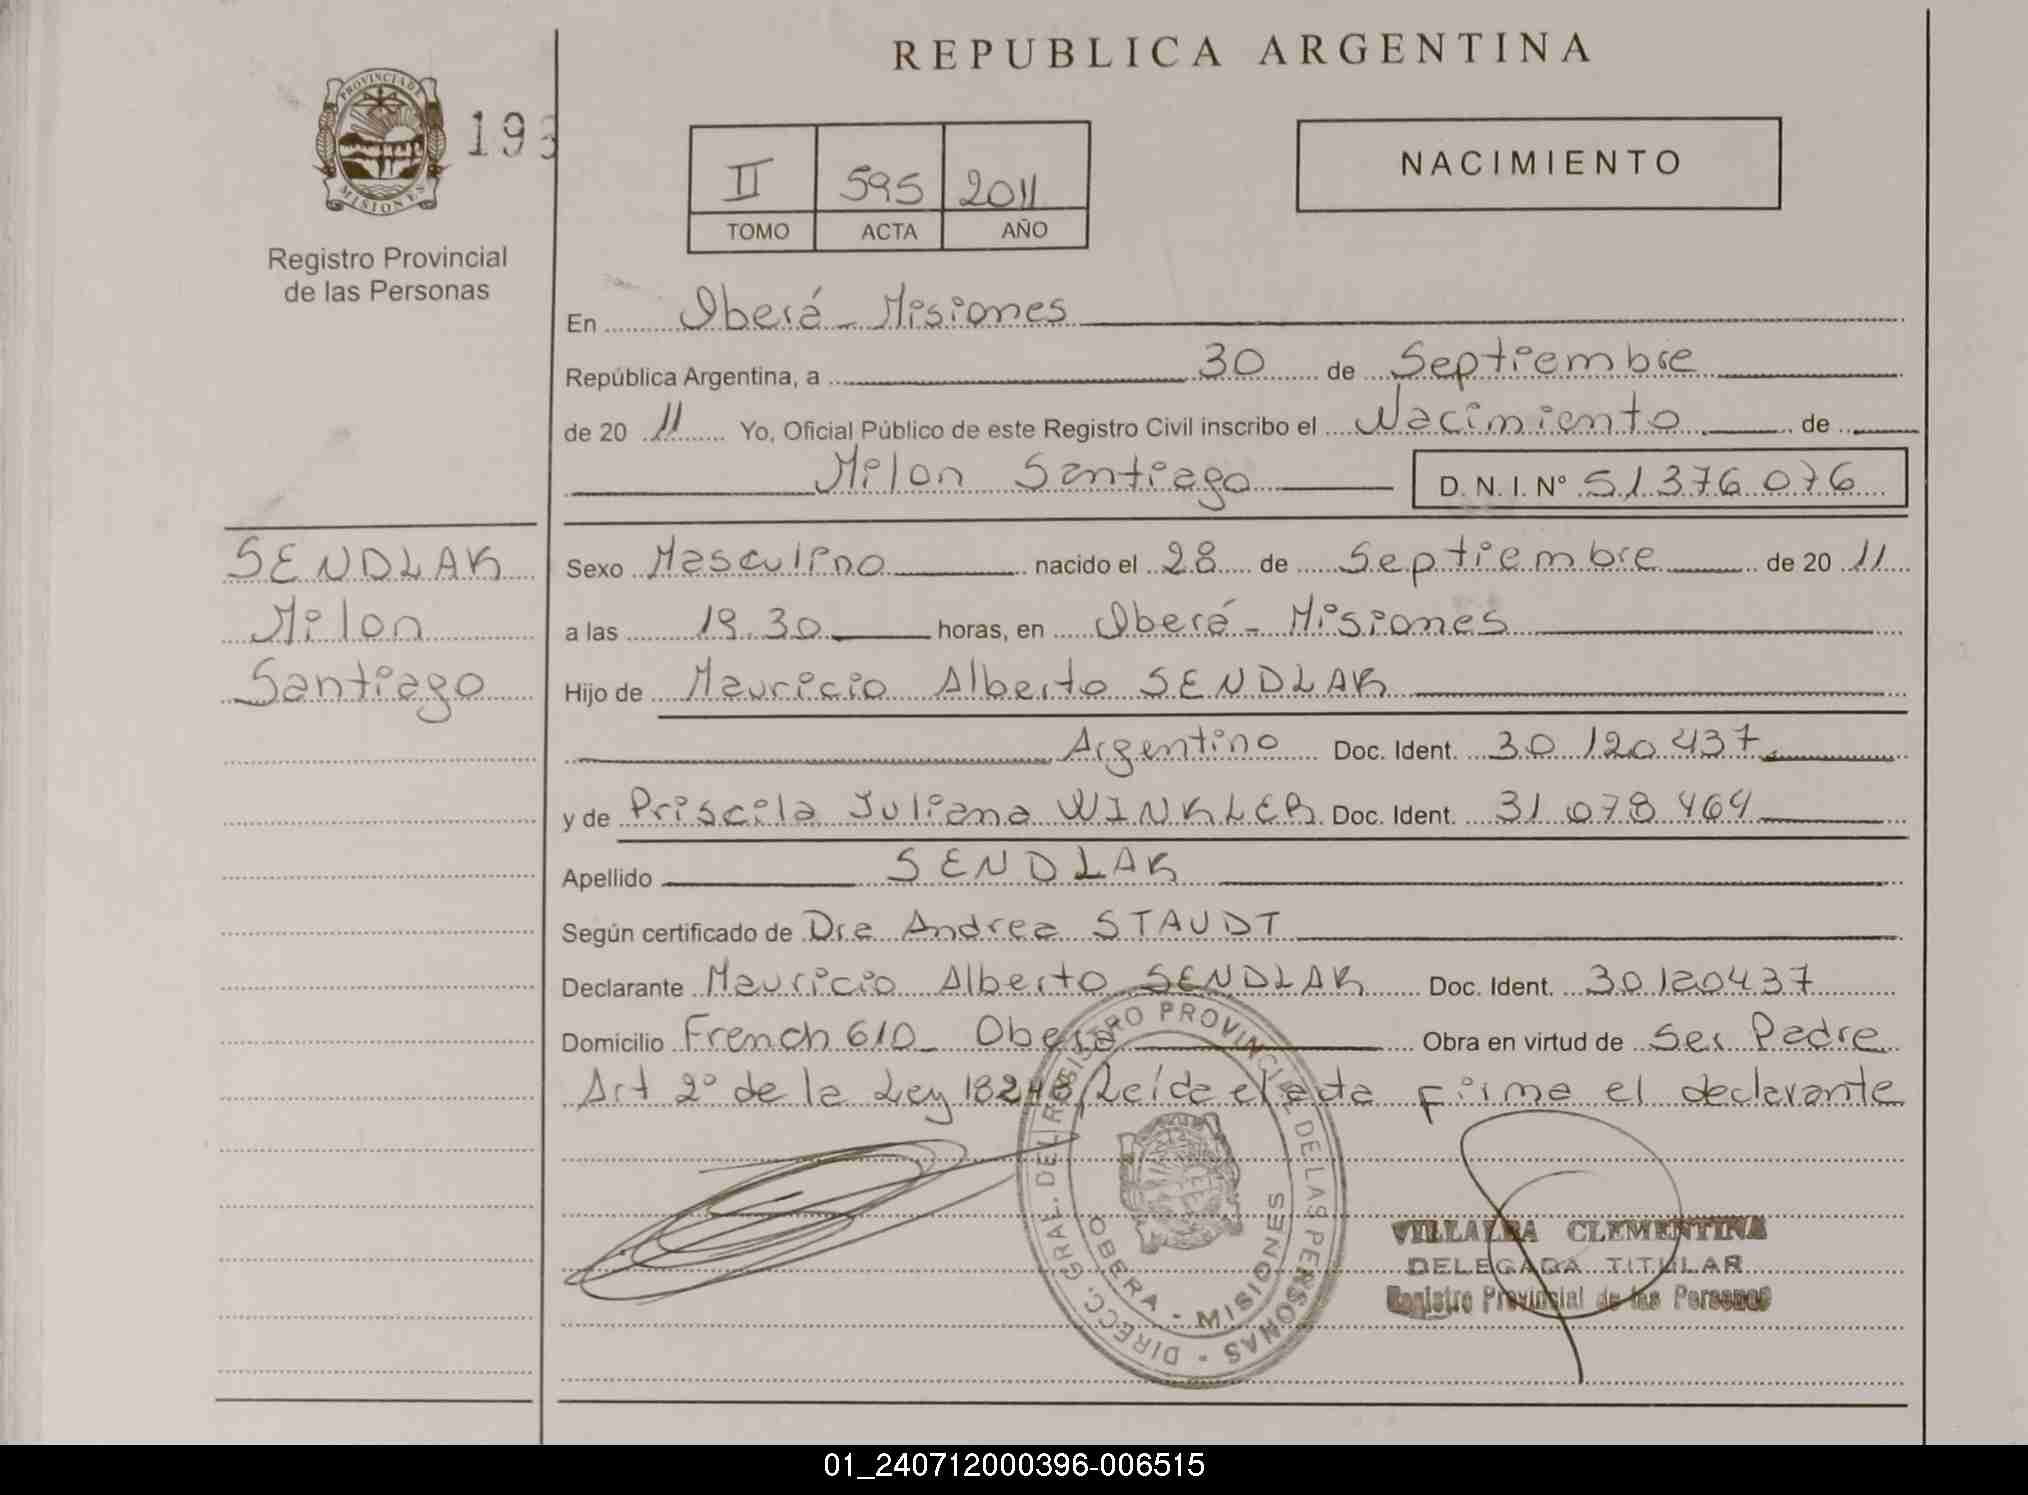 REPUBLICA ARGENTINA
PROVINCIA DE
MISIONES
193
Registro Provincial
de las Personas
II 595 2011
TOMO ACTA AÑO
NACIMIENTO
En Oberá - Misiones
República Argentina, a 30 de Septiembre
de 20 11 Yo, Oficial Público de este Registro Civil inscribo el Nacimiento de
Milon Santiago D. N. I. Nº 51 376 076
SENDLAK
Milon
Santiago
Sexo Masculino nacido el 28 de Septiembre de 20 11
a las 19.30 horas, en Oberá - Misiones
Hijo de Mauricio Alberto SENDLAK
Argentino Doc. Ident. 30 120 437
y de Priscila Juliana WINKLER Doc. Ident. 31 078 464
Apellido SENDLAK
Según certificado de Dra Andrea STAUDT
Declarante Mauricio Alberto SENDLAK Doc. Ident. 30120437
Domicilio French 610 - Oberá Obra en virtud de Ser Padre
Art 2º de la Ley 18248 Leída el acta firma el declarante
DIRECC. GRAL. DEL REGISTRO PROVINCIAL DE LAS PERSONAS -
OBERA - MISIONES
VILLALBA CLEMENTINA
DELEGADA TITULAR
Registro Provincial de las Personas
01_240712000396-006515